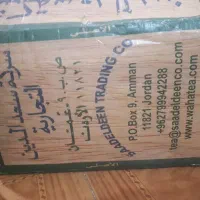 شركة سعد الدين
التجارية
ص.ب ٩ عمان
١١٨٢١ الأردن
SAADELDEEN TRADING CO.
P.O.Box 9, Amman
11821 Jordan
+962799942288
tea@saadeldeenco.com
www.wahatea.com